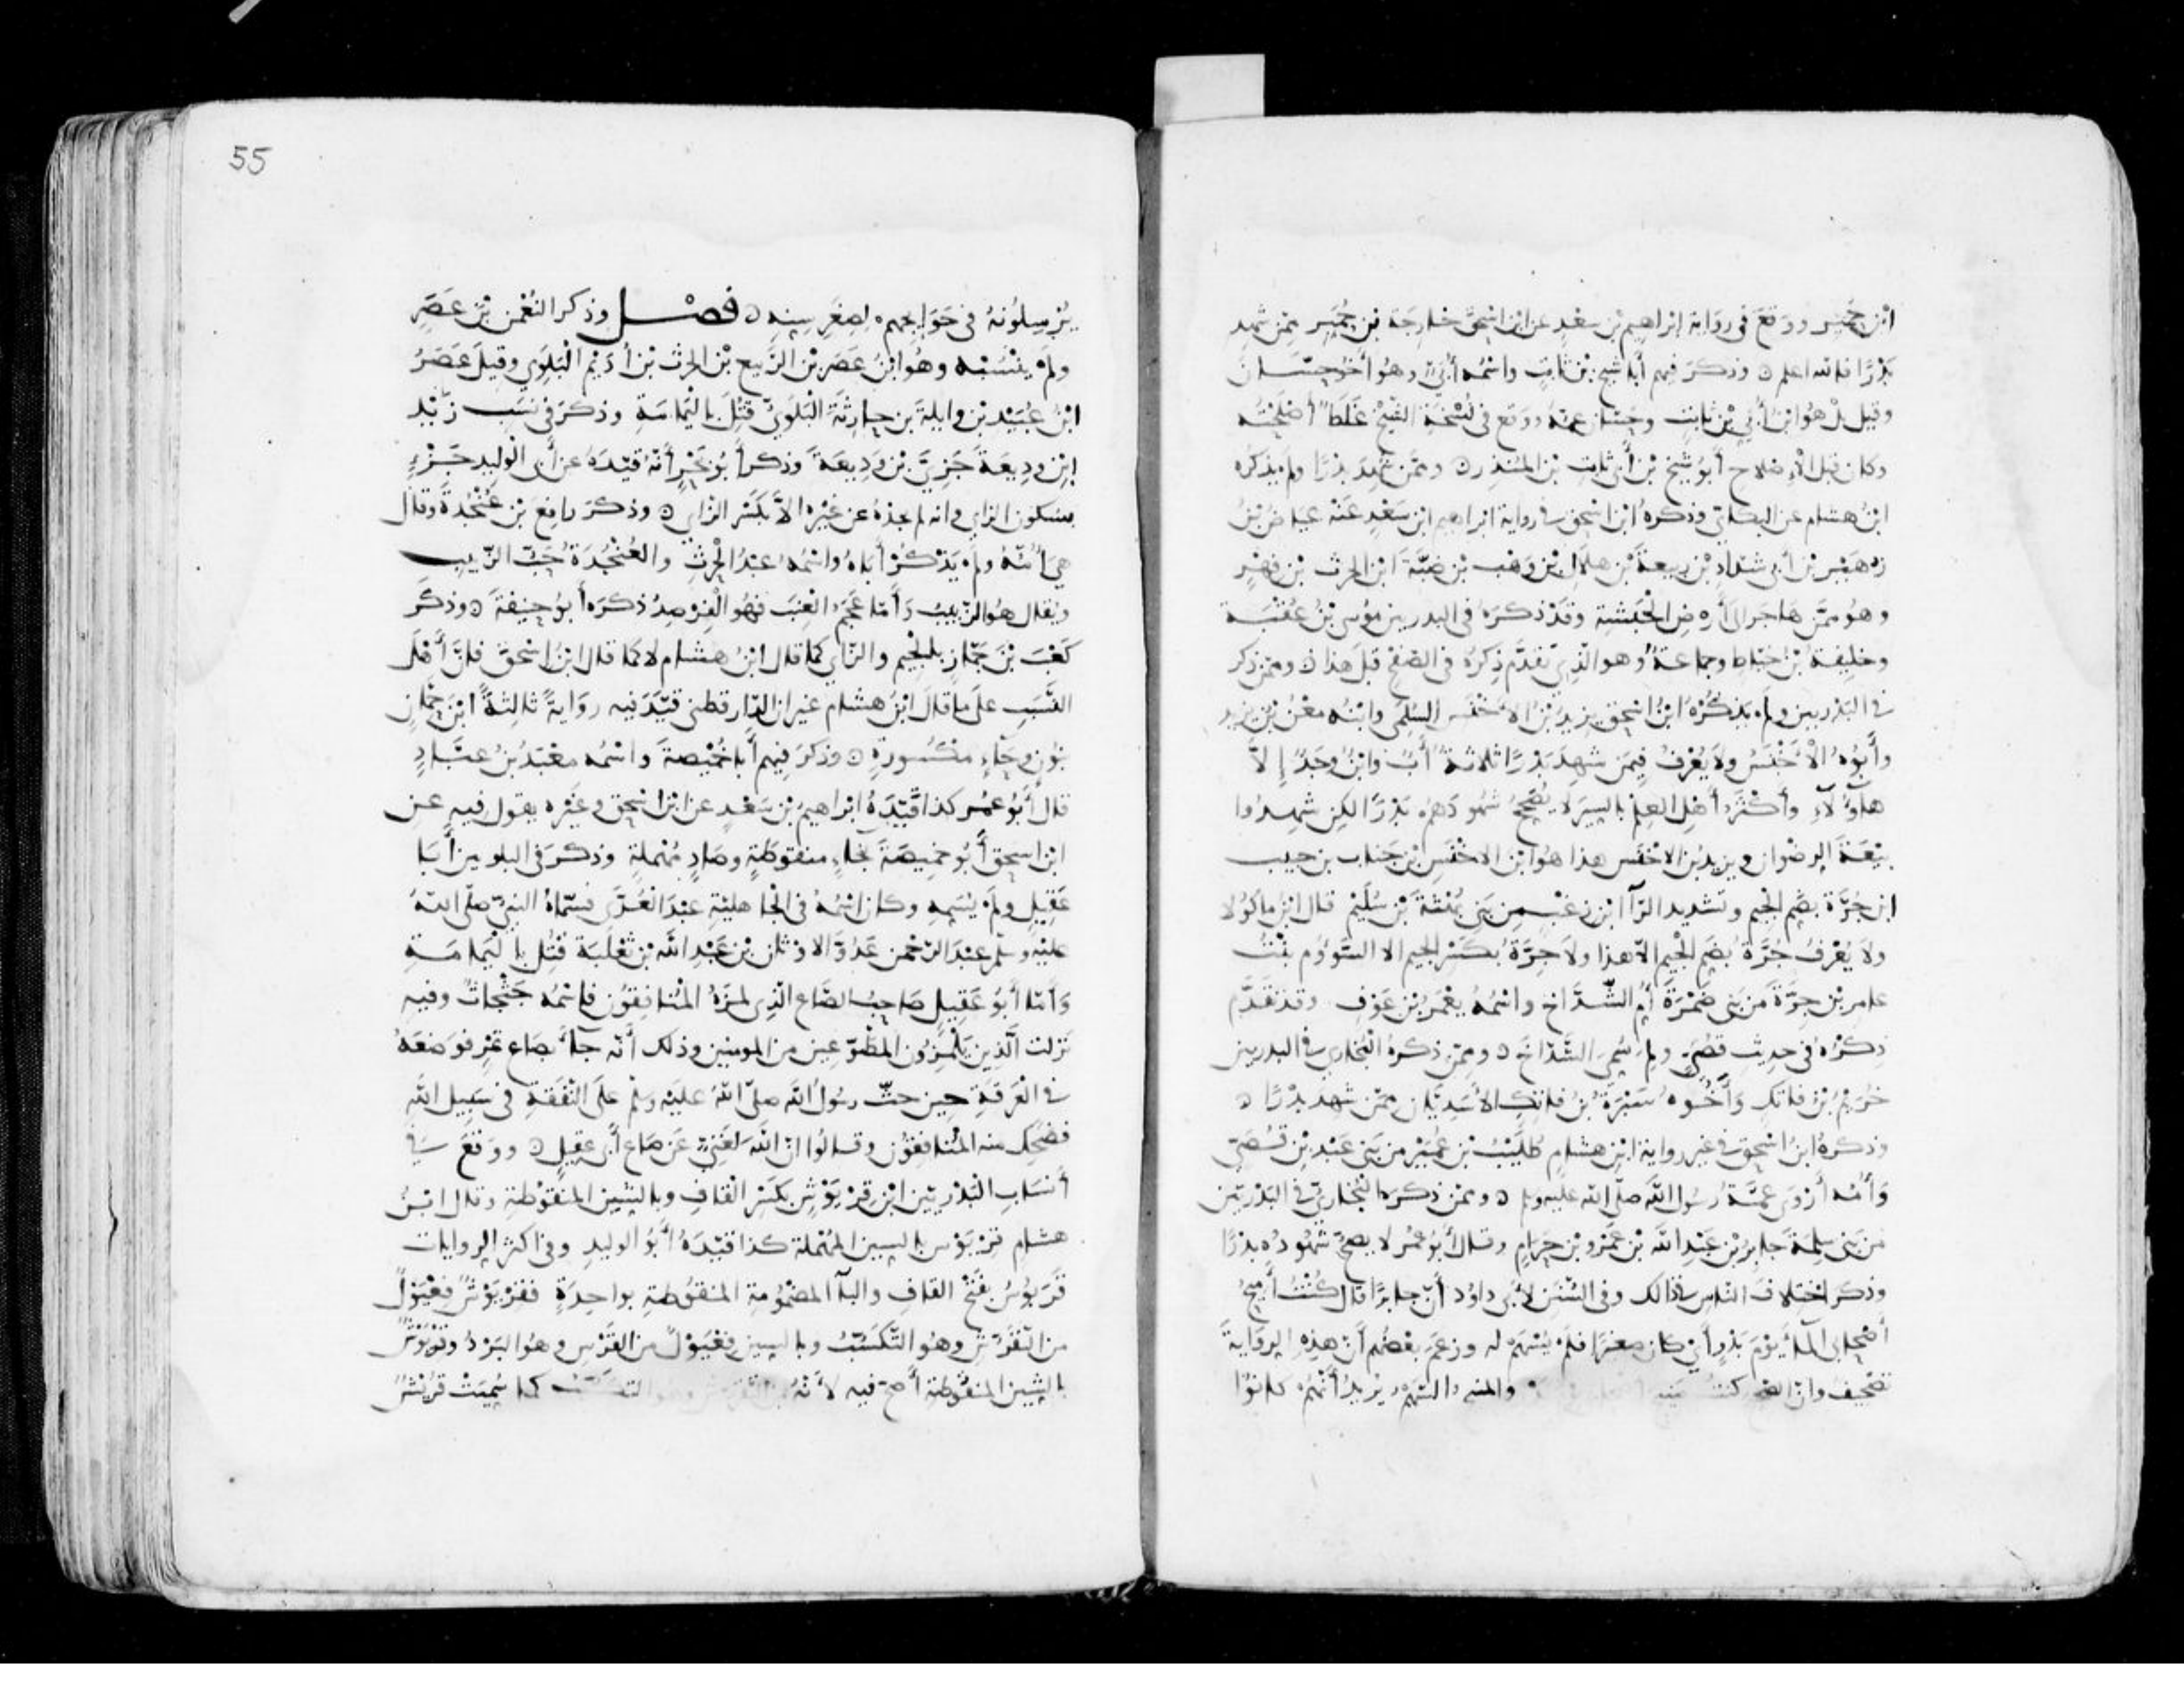 ابْن حُمَيِّر ووَقَعَ في رِوَاية إبْراهيم بْن سعْدٍ عن ابْن اسْحٰق خَارِجَة بْن حُمَيِّر ممّن شهد
بَدْرًا فالله اعلم وذكَرَ فيهم أبا شيخ بْن ثَابِتٍ واسْمُه أُبَيّ وهُو أَخُو حَسّان
وقيل بل هُوَ ابْنُ أُبَيّ بْن ثابتٍ وحَسّان عمّه ووَقَعَ في نُسْخَةِ الشّيْخ غَلَطًا أصْلَحْتُه
وكان قبل الإصْلاح أبُو شَيْخ بْن أُبَيّ ثابت بْن المُنذِر وممّن شَهِدَ بَدْرًا ولم يذكره
ابْنُ هشام عن البكائي وذكَرهُ ابْن اسْحٰق في رواية ابْراهيم ابْن سَعْدٍ عَنْه عياضُ بْنُ
زُهَيْر بْن أبي شَدّاد بْن ربيعةَ بْن هِلال بْن وَهْب بْن ضَبّةَ ابْن الحرث بْن فِهْرٍ
وهُو ممّن هَاجَر إلى أرْضِ الحَبَشة وقدْ ذكَرَهُ في البدريين مُوسى بْنُ عُقْبَة
وخليفةُ بْن خيّاط وجماعةٌ وهو الّذي تقدّم ذِكرُه في الصّفْح قبل هذا وممّن ذكر
في البَدْريين ولم يذكُرْهُ ابْنُ اسْحٰق يزيدُ بْنُ الأخْنَس السُّلَمي وابْنُه معْنُ بْن يزيد
وأبُوهُ الأخْنَسُ ولا يُعْرَفُ فيمَن شَهِدَ بَدْرًا ثلاثةٌ أبٌ وابْنٌ وجَدٌّ إلاّ
هآؤلآءِ وأكْثَرُ أهْل العِلم بالسِّيَر لا يُصَحّحُ شهُودَهُم بَدْرًا لكِن شهِدُوا
بيْعَةَ الرضْوان ويزيدُ بْن الأخْنَس هذا هُوَ ابْن الأخْنَس بْن جَنَاب بن حبيب
ابن جُرَّة بضَمّ الجيم وتشديد الرّآ ابْن زغْبٍ مِن بَني بُهْثَةَ بْن سُلَيْم قال ابْنُ ماكُولا
ولا يُعْرَفُ جُرَّة بضَمّ الجيم إلاّ هذا ولا جِرَّة بكَسْر الجيم إلا السّؤوم بنْتُ
عامِر بْن جِرَّةَ مَن بَني ضَمْرَةَ أمّ الشّدّاخ واسْمُهُ يعْمَرُ بْن عَوْفٍ وقد تقدّم
ذِكرُهُ في حديثِ قُصَيٍّ ولِمَ سُمّي الشّدّاخَ وممّن ذكرهُ البُخاري في البدريين
خُرَيْمُ بْن فاتكٍ وَأخُوه سَبْرَةُ بْنُ فاتكٍ الأسَديّان ممّن شهدَ بدْرًا
وذكرهُ ابْنُ اسْحٰق في غير رواية ابْن هشام طُلَيْبُ بْن عُمَيْر من بَني عَبْد بْن قُصَيّ
وَأمّه أرْوَى عمّةُ رسُول الله صلّى الله عليه وسلم وممّن ذكرَه البُخاريّ في البَدْريّين
من بَني سَلِمَةَ جابرُ بْن عَبْدِ الله بْن عَمْرو بْن حَرَامٍ وقال أبُو عُمَر لا يصحّ شُهُودُه بدْرًا
وذكر اختلافَ النّاس في ذالك وفي السُّنَن لأبي داوُد أنّ جابرًا قال كُنْتُ أميحُ
أصْحابي المآءَ يَوْمَ بَدْرٍ أيْ كان صَغيرًا فلَم يُسْهَمْ له وزعَمَ بعْضُهم أنّ هذهِ الروايةَ
تصْحيف وانّ الصّحيح كُنتُ مَنيحَ أصْحابي والمنيح السّهْم يُريدُ أنّهُم كانُوا
55
يُرْسِلُونَهُ في حَوَايجهم لصِغَرِ سِنِه فصْل وذكر النُّعْمٰن بْنَ عَصَرٍ
ولم ينْسُبْه وهُو ابْنُ عَصَر بْن الرّبيع بْن الحرث بْن أُدَيْم البَلَوي وقيلَ عَصَرُ
ابْنُ عُبَيْد بْن وايلةَ بْن حارِثَةَ البَلَوِيّ قُتِلَ باليَمامَةِ وذكَرَ في نَسَب زَيْد
ابْن ودِيعَةَ جَزِيَّ بْن وَدِيعَةَ وذكرَ أبُو بَحْرٍ أنّهُ قيّدَهُ عن أبي الوليد جَزْءٍ
بسكون الزاي وانه لم يجدْهُ عن غيْره الاّ بكَسْر الزّاي وذكَرَ رافِعَ بْن عُنْجُدَةَ وقال
هيَ أُمّهُ ولم يَذْكُرْ أبَاهُ واسْمُهُ عبْدُ الحرثِ والعُنْجُدَةُ حَبّ الزّبيب
ويُقال هُو الزّبيبُ وَأمّا عَجَمُ العِنَب فهُو الفِرْصِدُ ذكرَه أبُو حنيفة وذكَر
كَعْبَ بْن جَمّازٍ بالجيم والزّاي كما قال ابْنُ هشامٍ لا كما قال ابْنُ اسْحٰق فانّ أهْلَ
النّسَب على ما قال ابْنُ هشام غير ان الدّارقطني قيّدَ فيه روَايةً ثالثةً ابْن حِمّانٍ
بنُون وحاءٍ مكْسُورةٍ وذكرَ فيهم أبا حُمَيْصةَ واسْمُه معْبَدُ بْنُ عبّادٍ
قالَ أبُو عمر كذا قيّدَهُ ابْراهيمُ بْن سَعْدٍ عن ابْن اسْحٰق وغَيْره يقول فيه عن
ابْن اسحٰق أبُو خميصَةَ بخاءٍ منقوطَةٍ وصادٍ مُهْملةٍ وذكَرَ في البلويين أبَا
عَقِيل ولم يُسَمِّهِ وكان اسْمُهُ في الجاهليّةِ عَبْدَ العُزّى فسَمّاهُ النبيّ صلّى اللهُ
عليْه وسلّم عبْدَ الرّحْمن عَدُوَّ الاوْثان بْن عَبْدِ الله بْن ثعْلَبَة قُتِل باليَمامَة
وَأمّا أبُو عَقِيل صَاحِبُ الصّاع الّذي لمزَهُ المُنافِقُون فاسْمُه جَثْجاثٌ وفيه
نزَلت الّذين يَلْمِزُون المُطّوّعِين من المومنين وذلك أنّه جآءَ بصَاع تمْرٍ فوَضَعَهُ
في الغَرفَةِ حين حثّ رسُولُ الله صلّى اللهُ عليْه وسلّم على النّفَقَةِ في سَبيل الله
فضَحِك منه المُنافِقُون وقالُوا انّ اللهَ لغَنِيّ عَن صَاع أبي عقيل ووقعَ في
أنْسَاب البَدْريّين ابْن قِرْيَوْش بكَسْر القاف وبالشّين المنقُوطة وقال ابْنُ
هشام قرْيَوْس بالسين المُهْملة كذا قيّدَهُ أبُو الوليدِ وفي اكثر الروايات
قَرَبُوسُ بفتْح القافِ والبآ المضْمُومة المنقُوطةِ بواحِدَةٍ فقِرْيَوْشٌ فِعْيَوْلٌ
من التّقَرّش وهُو التّكَسّبُ وبالسين فِعْيَوْلٌ من القَرْس وهُو البَرْدُ وقِرْيَوْش
بالشين المنقُوطةِ أصَحّ فيه لأنّهُ من التّقرّش وهو التكسّب كما سُمّيَتْ قُرَيْشٌ